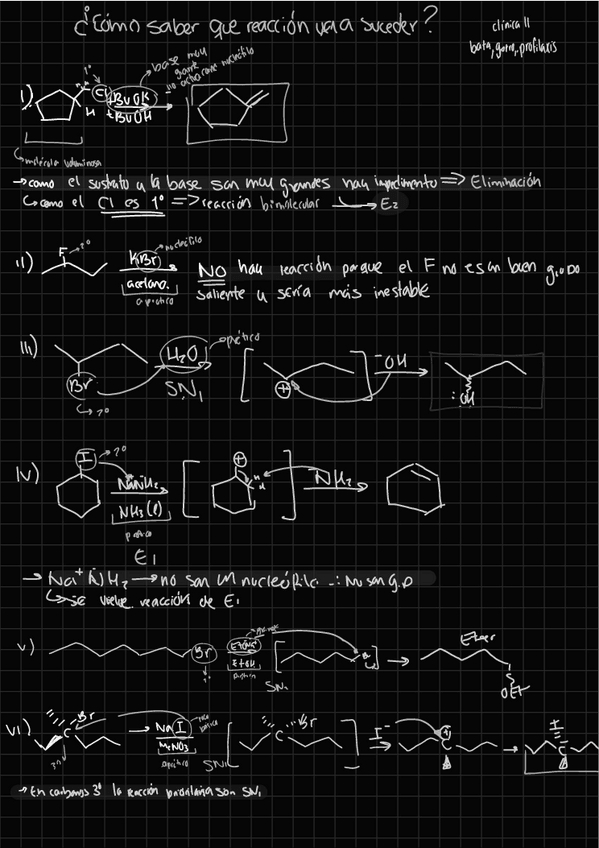 ¿Cómo saber que reacción va a suceder?
clínica II
bata, gorro, profilaxis
I) 1° Cl H
tBuOK
tBuOH
base muy
grande
no actua como nucleófilo
molécula voluminosa
→ como el sustrato y la base son muy grandes hay impedimento => Eliminación
como el Cl es 1° => reacción bimolecular → E2
II) F 2° KBr nucleófilo
acetona
aprótico
NO hay reacción porque el F no es un buen grupo
saliente y sería más inestable
III) Br 2° H2O prótico
SN1
⊕ -OH :OH
IV) I 2° NaNH2
NH3(l)
prótico
E1
⊕ H H NH2
→ Na+ NH2 → no son un nucleófilo
se vuelve reacción de E1
V) Br EtONa
EtOH
SN1
Eter
OEt
VI) Br C 3° NaI
MeNO2
aprótico
SN1
C Br I- C I C
→ En carbonos 3° la reacción son SN1